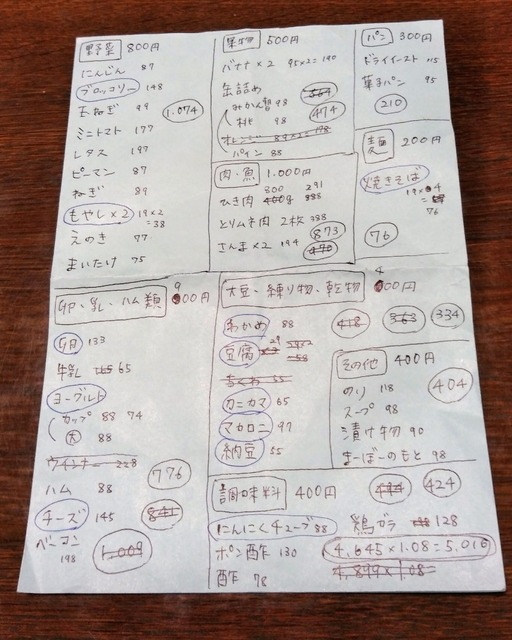 野菜 800円
にんじん 87
ブロッコリー 148
玉ねぎ 99
1.074
ミニトマト 177
レタス 197
ピーマン 87
ねぎ 89
もやし×2 19×2
=38
えのき 77
まいたけ 75
果物 500円
バナナ×2 95×2=190
缶詰め
みかん 98
桃 98
474
オレンジ 89×2=178
パイン 88
肉・魚 1.000円
300 291
ひき肉
とりムネ肉 2枚 388
873
さんま×2 194
470
パン 300円
ドライイースト 115
菓子パン 95
210
麺 200円
焼きそば
19×4
=
76
76
卵、乳、ハム類 900円
卵 133
牛乳 165 65
ヨーグルト
カップ 88 74
大 88
ウインナー 228
776
ハム 88
チーズ 145
841
ベーコン
198
1.009
大豆・練り物・乾物 400円
わかめ 88
418 363 334
豆腐 29 29×2
=58
ちくわ 55
カニカマ 65
マカロニ 97
納豆 55
その他 400円
のり 118
404
スープ 98
漬け物 90
まーぼーのもと 98
調味料 400円
494 424
にんにくチューブ 88
鶏ガラ 128
ポン酢 130
4,645×1.08=5.016
酢 78
4,899×1.08=